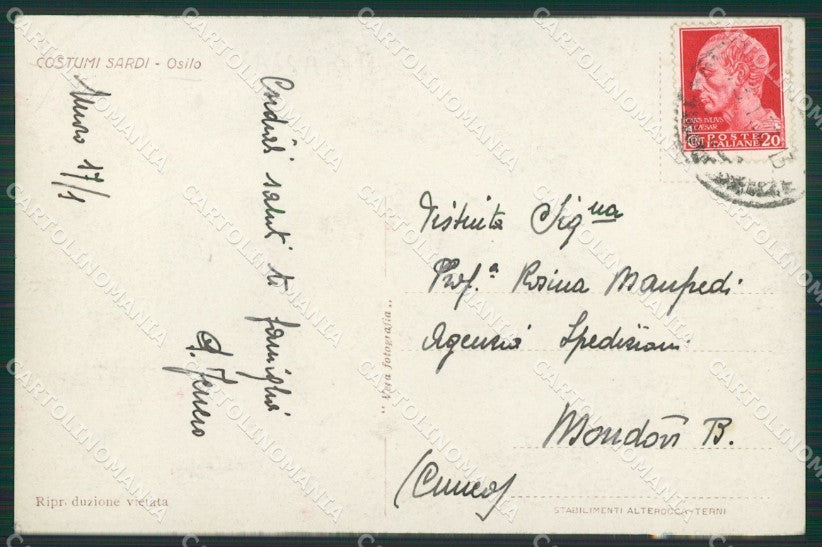 COSTUMI SARDI - Osilo
Nuoro 17/1
Cordiali saluti te famiglia
"Vera fotografia"
Riproduzione vietata
CAIVS IVLIVS
CAESAR
CENT POSTE
ITALIANE 20
Distinta Sig.na
Prof.a Rosina Manfredi
Agenzia Spedizioni
Mondovì B.
(Cuneo)
STABILIMENTI ALTEROCCA-TERNI
CARTOLINOMANIA